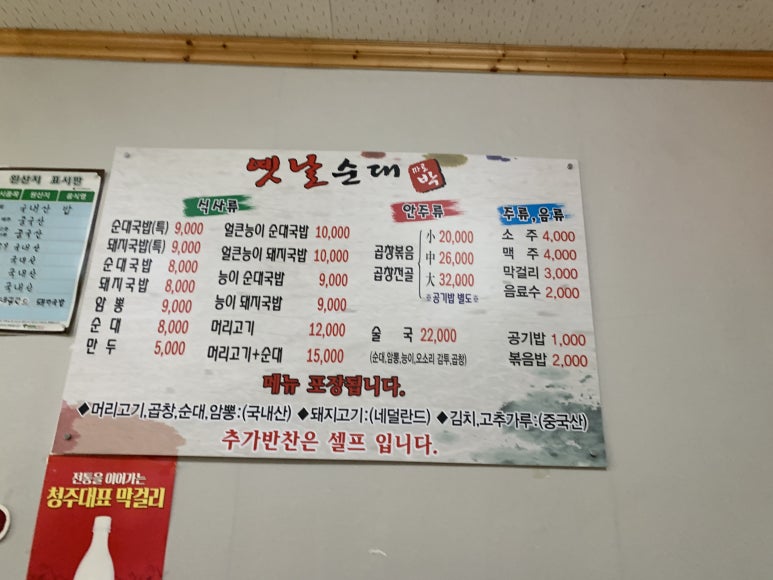 옛날순대 따로박
식사류
순대국밥(특) 9,000
돼지국밥(특) 9,000
순대국밥 8,000
돼지국밥 8,000
암뽕 9,000
순대 8,000
만두 5,000
얼큰능이 순대국밥 10,000
얼큰능이 돼지국밥 10,000
능이 순대국밥 9,000
능이 돼지국밥 9,000
머리고기 12,000
머리고기+순대 15,000
안주류
곱창볶음
곱창전골
小 20,000
中 26,000
大 32,000
※공기밥 별도※
술국 22,000
(순대,암뽕,능이,오소리 감투,곱창)
주류,음류
소주 4,000
맥주 4,000
막걸리 3,000
음료수 2,000
공기밥 1,000
볶음밥 2,000
메뉴 포장됩니다.
◆머리고기,곱창,순대,암뽕:(국내산) ◆돼지고기:(네덜란드) ◆김치,고추가루:(중국산)
추가반찬은 셀프 입니다.
원산지 표시판
원산지 음식명
국내산 밥
중국산
중국산
국내산
국내산
국내산
국내산
돼지국밥
전통을 이어가는
청주대표 막걸리